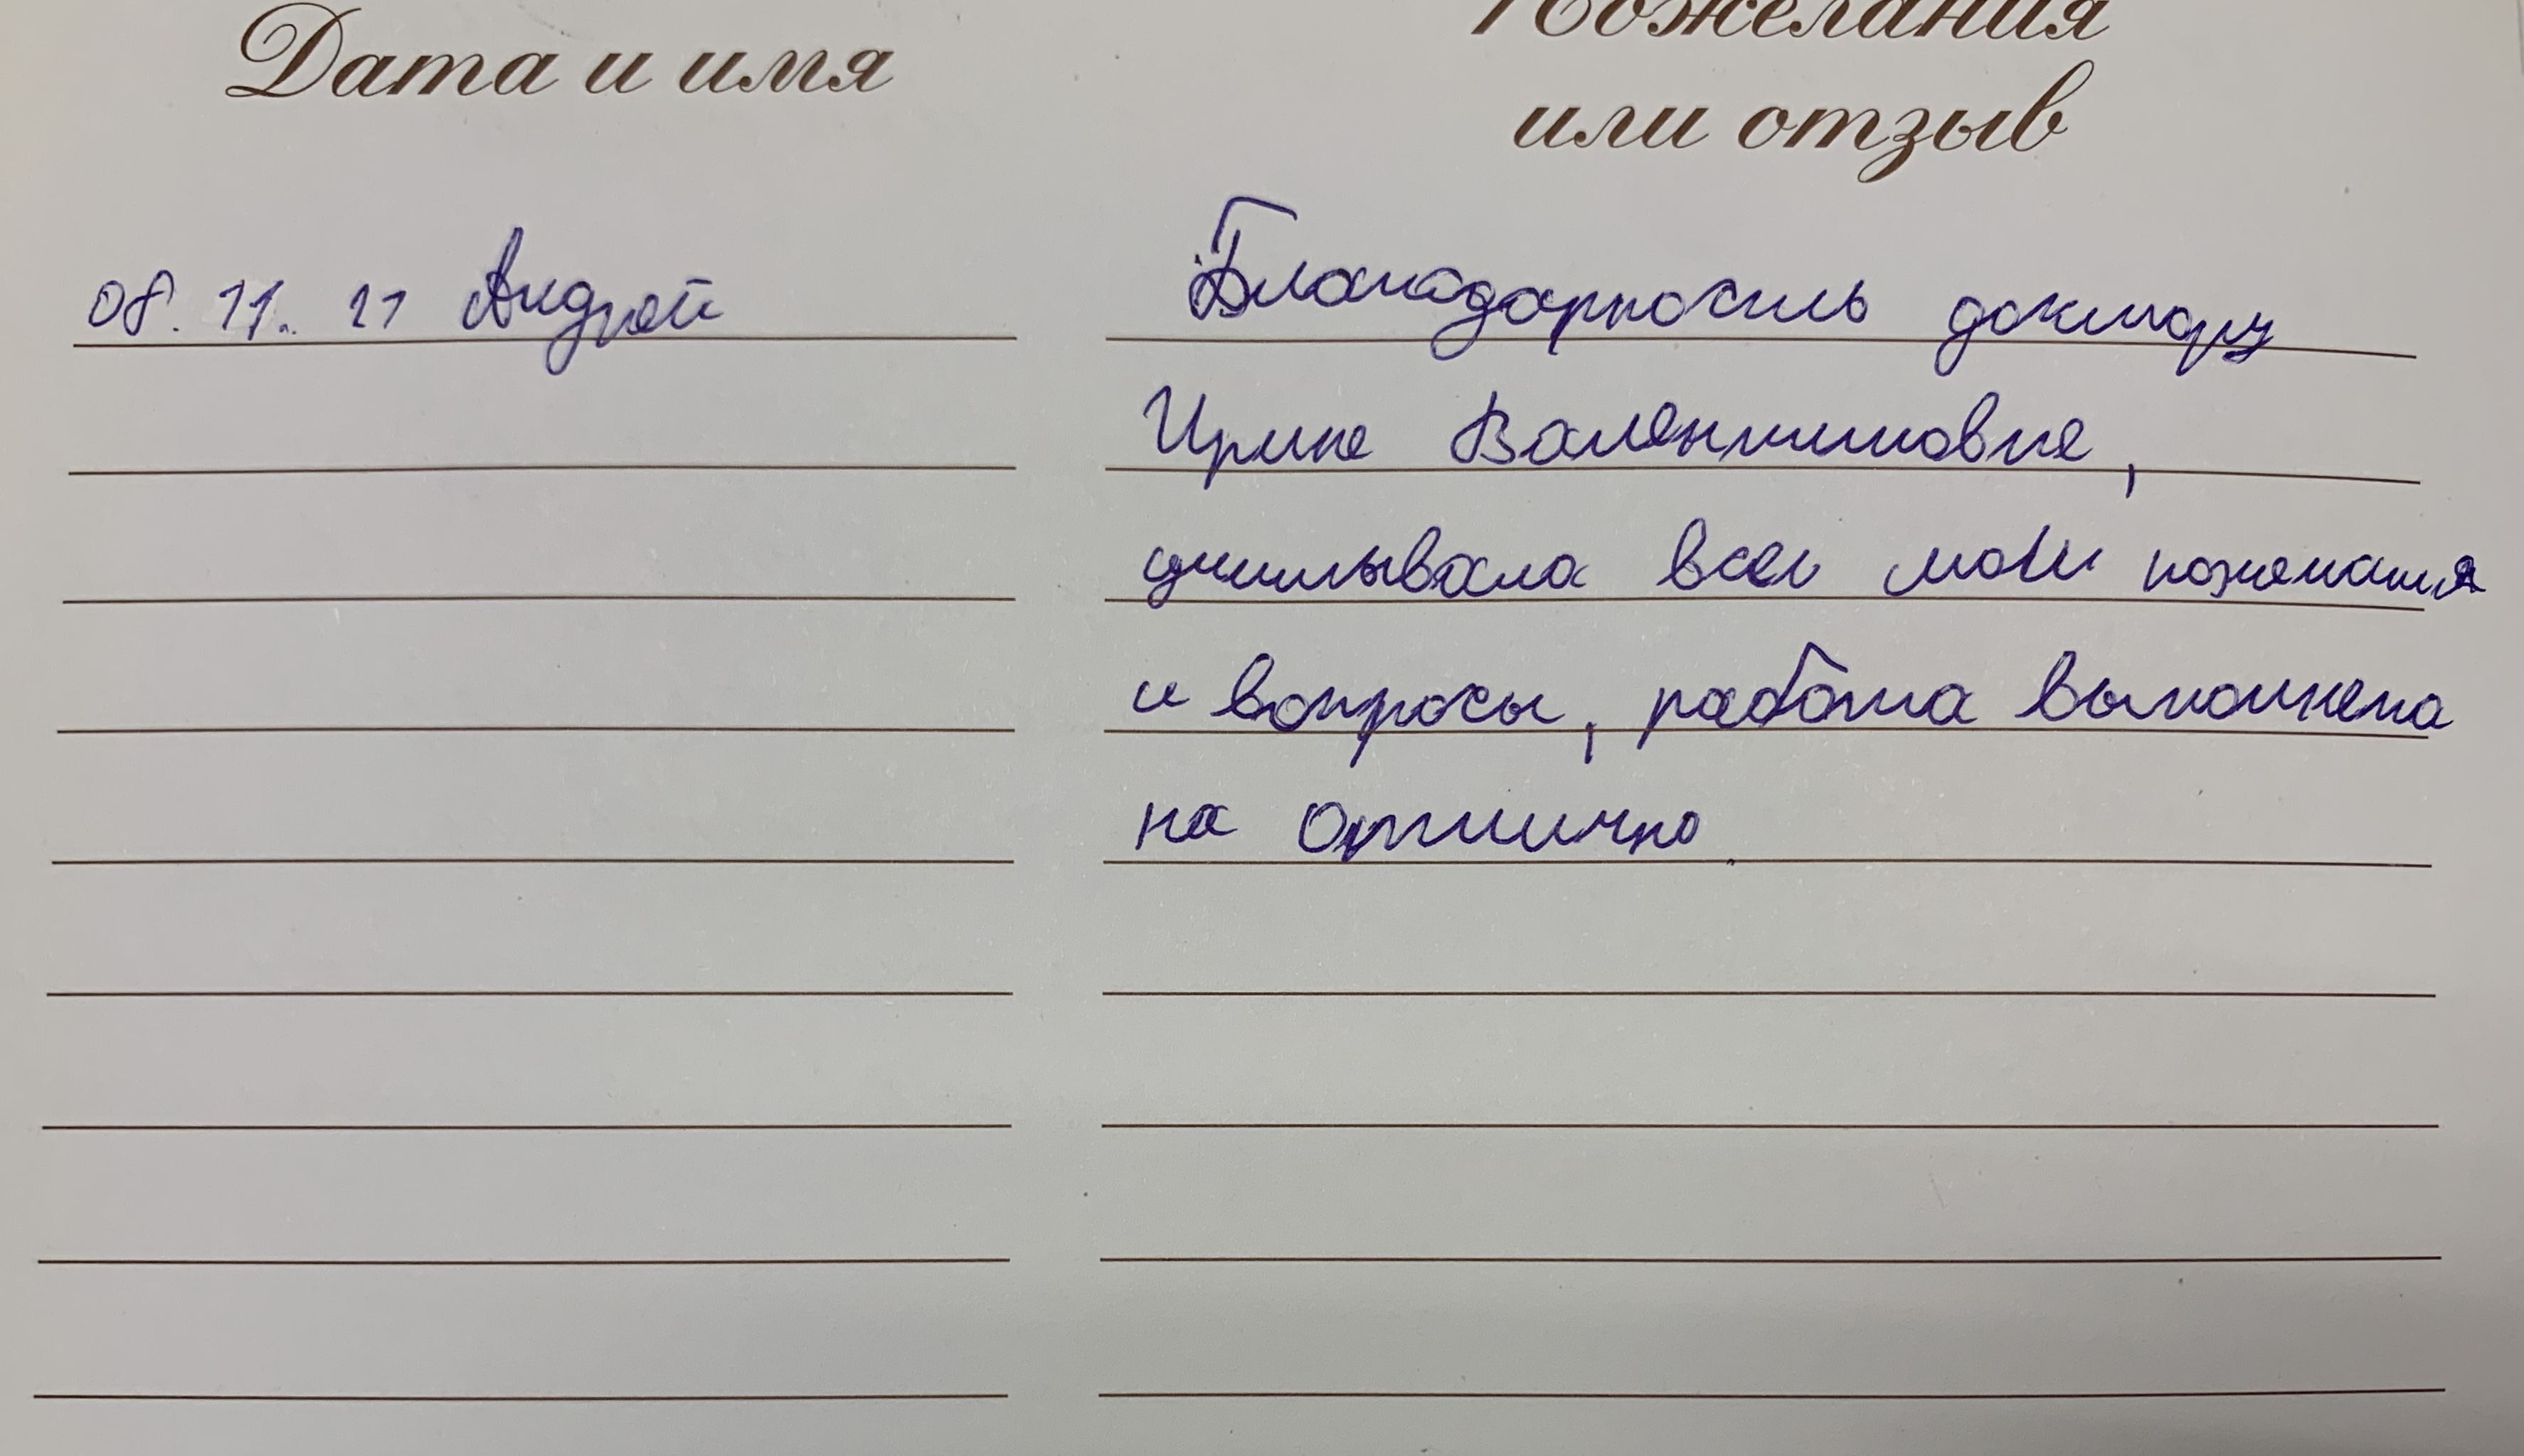 Дата и имя
Пожелания
или отзыв
08.11.21 Андрей
Благодарность доктору
Ирине Валентиновне,
учитывала все мои пожелания
и вопросы, работа выполнена
на отлично.